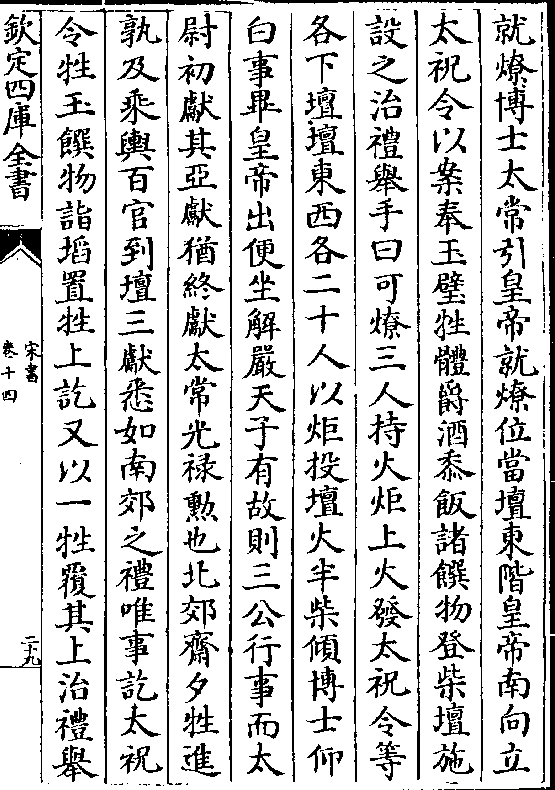 就燎博士太常引皇帝就燎位當壇東階皇帝南向立
太祝令以案奉玉璧牲體爵酒黍飯諸饌物登柴壇施
設之治禮舉手曰可燎三人持火炬上火發太祝令等
各下壇壇東西各二十人以炬投壇火半柴傾博士仰
白事畢皇帝出便坐解嚴天子有故則三公行事而太
尉初獻其亞獻猶終獻太常光祿勲也北郊齋夕牲進
孰及乘輿百官到壇三獻悉如南郊之禮唯事訖太祝
令牲玉饌物詣埳置牲上訖又以一牲覆其上治禮舉
欽定四庫全書
宋書
卷十四
二十九